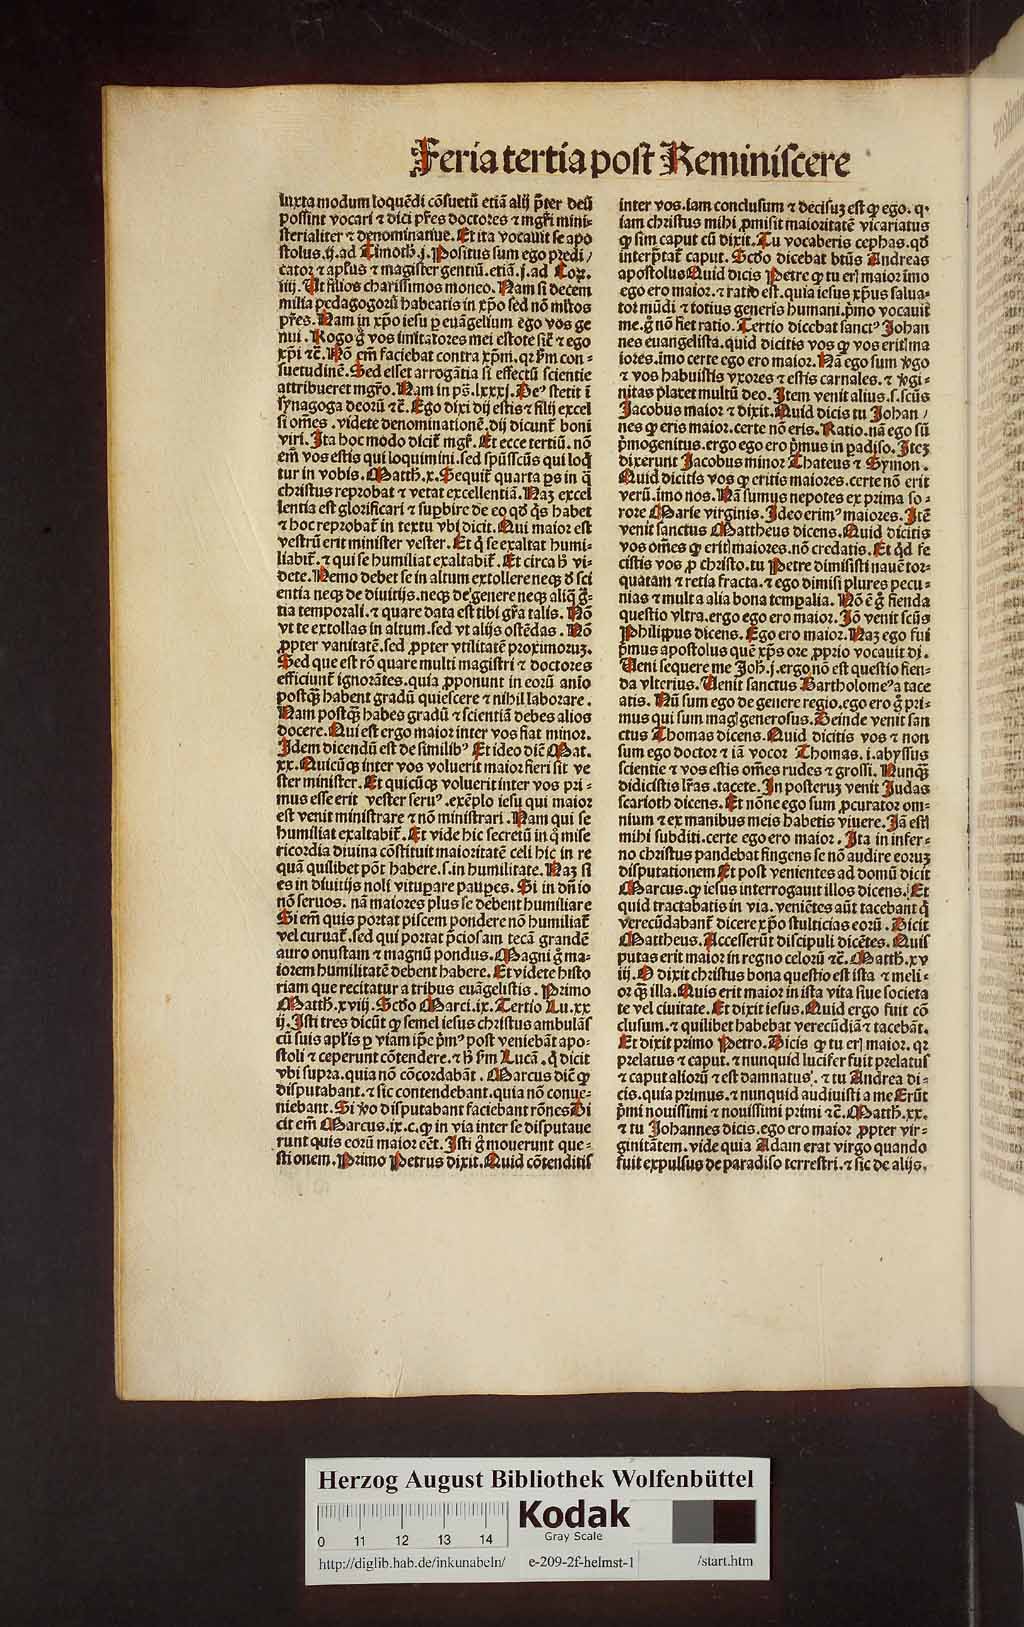 Feria tertia post Reminiscere
iuxta modum loquēdi cōsuetū etiā alij p̄ter deū
possint vocari ⁊ dici p̄res doctores ⁊ mgr̄i mini⸗
sterialiter ⁊ denominatiue. Et ita vocauit se apo
stolus .ij. ad Timoth. j. Positus sum ego predi /
cator ⁊ apl̄us ⁊ magister gentiū. etiā .j. ad Coꝝ.
iiij. Ut filios charissimos moneo. Nam si decem
milia pedagogorū habeatis in xp̄o sed nō mltos
p̄res. Nam in xp̄o iesu ꝑ euāgelium ego vos ge
nui. Rogo g̊ vos imitatores mei estote sic̄ ⁊ ego
xp̄i ⁊c̄. Nō em̄ faciebat contra xp̄m. qꝛ ẜm con⸗
suetudinē. Sed esset arrogātia si effectū scientie
attribueret mgr̄o. Nam in ps̄. lxxxj. Deꝰ stetit ī
synagoga deorū ⁊c̄. Ego dixi dij estis ⁊ filij excel
si om̄es. videte denominationē. dij dicunt̄ boni
viri. Ita hoc modo dicit̄ mgr̄. Et ecce tertiū. nō
em̄ vos estis qui loquimini. sed spūsscūs qui loqͥ
tur in vobis. Matth. x. Sequit̄ quarta ꝑs in q̄
christus reprobat ⁊ vetat excellentiā. Naꝫ excel
lentia est glorificari ⁊ suꝑbire de eo qd̄ qͥs habet
⁊ hoc reprobat̄ in textu vbi dicit. Qui maior est
vestrū erit minister vester. Et qͥ se exaltat humi⸗
liabit̄. ⁊ qui se humiliat exaltabit̄. Et circa h̄ vi⸗
dete. Nemo debet se in altum extollere neqꝫ d̄ sci
entia neqꝫ de diuitijs. neqꝫ de genere neqꝫ aliq̄ g̅⸗
tia temporali. ⁊ quare data est tibi gr̄a talis. Nō
vt te extollas in altum. sed vt alijs ostēdas. Nō
ꝓpter vanitatē. sed ꝓpter vtilitatē proximoruꝫ.
Sed que est rō quare multi magistri ⁊ doctores
efficiunt̄ ignorātes. quia ꝓponunt in eorū aīo
postqꝫ habent gradū quiescere ⁊ nihil laborare.
Nam postqꝫ habes gradū ⁊ scientiā debes alios
docere. Qui est ergo maior inter vos fiat minor.
Idem dicendū est de similibꝰ Et ideo dic̄ Mat.
xx. Quicūqꝫ inter vos voluerit maior fieri sit ve
ster minister. Et quicūqꝫ voluerit inter vos pri⸗
mus esse erit vester seruꝰ. exēplo iesu qui maior
est venit ministrare ⁊ nō ministrari. Nam qui se
humiliat exaltabit̄. Et vide hic secretū in qͦ mise
ricordia diuina cōstituit maioritatē celi hic in re
quā quilibet pōt habere. s. in humilitate. Naꝫ si
es in diuitijs noli vituꝑare pauꝑes. Si in dn̄io
nō seruos. nā maiores plus se debent humiliare
Si em̄ quis portat piscem pondere nō humiliat̄
vel curuat̄. sed qui portat p̄ciosam tecā grandē
auro onustam ⁊ magnū pondus. Magni g̊ ma⸗
iorem humilitatē debent habere. Et videte histo
riam que recitatur a tribus euāgelistis. Primo
Matth. xviij. Scd̄o Marci. ix. Tertio Lu. xx
ij. Isti tres dicūt ꝙ semel iesus christus ambulās
cū suis apl̄is ꝑ viam ip̄e p̄mꝰ post veniebāt apo⸗
stoli ⁊ ceperunt cōtendere. ⁊ h̄ ẜm Lucā. qͥ dicit
vbi supra. quia nō cōcordabāt. Marcus dic̄ ꝙ
disputabant. ⁊ sic contendebant. quia nō conue⸗
niebant. Si ꝟo disputabant faciebant rōnes Di
cit em̄ Marcus. ix. c. ꝙ in via inter se disputaue
runt quis eorū maior eēt. Isti g̊ mouerunt que⸗
stionem. Primo Petrus dixit. Quid cōtenditis
inter vos. iam conclusum ⁊ decisuꝫ est ꝙ ego. qꝛ
iam christus mihi ꝓmisit maioritatē vicariatus
ꝙ sim caput cū dixit. Tu vocaberis cephas. qd̄
interp̄tat̄ caput. Scd̄o dicebat btūs Andreas
apostolus Quid dicis Petre ꝙ tu eris maior imo
ego ero maior. ⁊ ratio est. quia iesus xp̄us salua⸗
tor mūdi ⁊ totius generis humani. p̄mo vocauit
me. g̊ nō fiet ratio. Tertio dicebat sanctꝰ Johan
nes euangelista. quid dicitis vos ꝙ vos eritis ma
iores. imo certe ego ero maior. Nā ego sum ꝟgo
⁊ vos habuistis vxores ⁊ estis carnales. ⁊ ꝟgi⸗
nitas placet multū deo. Item venit alius. s. scūs
Jacobus maior ⁊ dixit. Quid dicis tu Johan /
nes ꝙ eris maior. certe nō eris. Ratio. nā ego sū
p̄mogenitus. ergo ego ero p̄mus in ꝑadiso. Iteꝫ
dixerunt Jacobus minor Thateus ⁊ Symon.
Quid dicitis vos ꝙ eritis maiores. certe nō erit
verū. imo nos. Nā sumus nepotes ex prima so⸗
rore Marie virginis. Ideo erimꝰ maiores. Itē
venit sanctus Mattheus dicens. Quid dicitis
vos om̄es ꝙ eritis maiores. nō credatis. Et qͥd fe
cistis vos ꝓ christo. tu Petre dimisisti nauē tor⸗
quatam ⁊ retia fracta. ⁊ ego dimisi plures pecu⸗
nias ⁊ multa alia bona temꝑalia. Nō ē g̊ fienda
questio vltra. ergo ego ero maior. Iō venit scūs
Philippus dicens. Ego ero maior. Naꝫ ego fui
p̄mus apostolus quē xp̄s ore ꝓprio vocauit di.
Ueni sequere me Joh. j. ergo nō est questio fien⸗
da vlterius. Uenit sanctus Bartholomeꝰ a tace
atis. Nū sum ego de genere regio. ego ero g̊ pri⸗
mus qui sum magis generosus. Deinde venit san
ctus Thomas dicens. Quid dicitis vos ⁊ non
sum ego doctor ⁊ iā vocor Thomas. i. abyssus
scientie ⁊ vos estis om̄es rudes ⁊ grossi. Nunqꝫ
didicistis lr̄as. tacete. In posteruꝫ venit Judas
scarioth dicens. Et nōne ego sum ꝓcurator om⸗
nium ⁊ ex manibus meis habetis viuere. Iā estis
mihi subditi. certe ego ero maior. Ita in infer⸗
no christus pandebat fingens se nō audire eoruꝫ
disputationem Et post venientes ad domū dicit
Marcus. ꝙ iesus interrogauit illos dicens. Et
quid tractabatis in via. veniētes aūt tacebant qͥ
verecūdabant̄ dicere xp̄o stulticias eorū. Dicit
Mattheus. Accesserūt discipuli dicētes. Quis
putas erit maior in regno celorū ⁊c̄. Matth. xv
iij. O dixit christus bona questio est ista ⁊ meli⸗
or qꝫ illa. Quis erit maior in ista vita siue societa
te vel ciuitate. Et dixit iesus. Quid ergo fuit cō
clusum. ⁊ quilibet habebat verecūdiā ⁊ tacebāt.
Et dixit primo Petro. Dicis ꝙ tu eris maior. qꝛ
prelatus ⁊ caput. ⁊ nunquid lucifer fuit prelatus
⁊ caput aliorū ⁊ est damnatus. ⁊ tu Andrea di⸗
cis. quia primus. ⁊ nunquid audiuisti a me Erūt
p̄mi nouissimi ⁊ nouissimi primi ⁊c̄. Matth. xx.
⁊ tu Johannes dicis. ego ero maior ꝓpter vir⸗
ginitātem. vide quia Adam erat virgo quando
fuit expulsus de paradiso terrestri. ⁊ sic de alijs.
Herzog August Bibliothek Wolfenbüttel
Kodak
Gray Scale
0 11 12 13 14
http://diglib.hab.de/inkunabeln/ e-209-2f-helmst-1 /start.htm